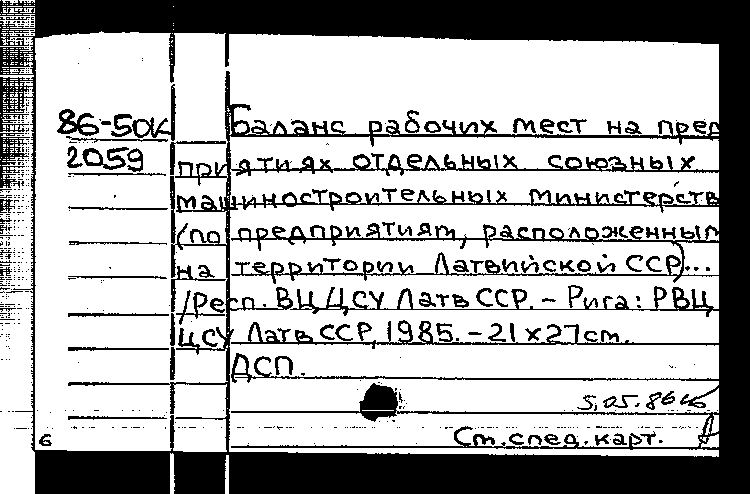 86-50к
2059
Баланс рабочих мест на пред
приятиях отдельных союзных
машиностроительных министерств
(по предприятиям, расположенным
на территории Латвийской ССР)...
/Респ. ВЦ ЦСУ Латв ССР. – Рига: РВЦ
ЦСУ Латв ССР, 1985. – 21 x 27 cm.
ДСП.
5.05.86
См. спец. карт.
6